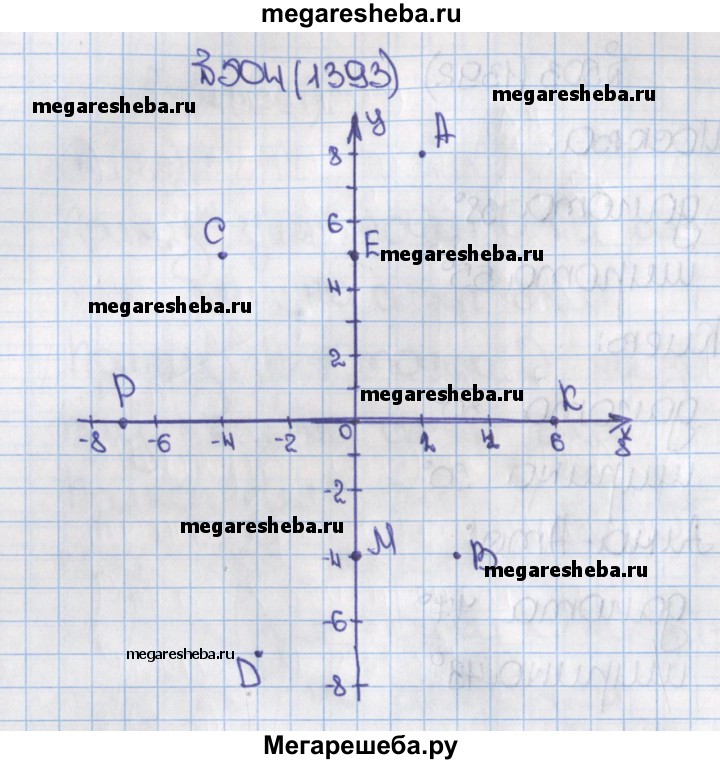 megaresheba.ru
(1393)
megaresheba.ru
megaresheba.ru
y
A
8
C
6
E
megaresheba.ru
4
megaresheba.ru
2
P
megaresheba.ru
K
-8 -6 -4 -2 0 2 4 6 8
x
-2
megaresheba.ru
M
-4
B
megaresheba.ru
-6
megaresheba.ru
D
-8
Мегарешеба.ру